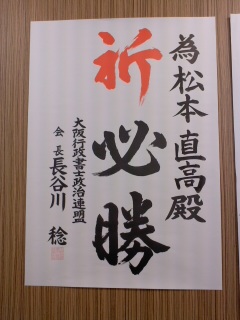 為松本直高殿
祈必勝
大阪行政書士政治連盟
会長長谷川稔